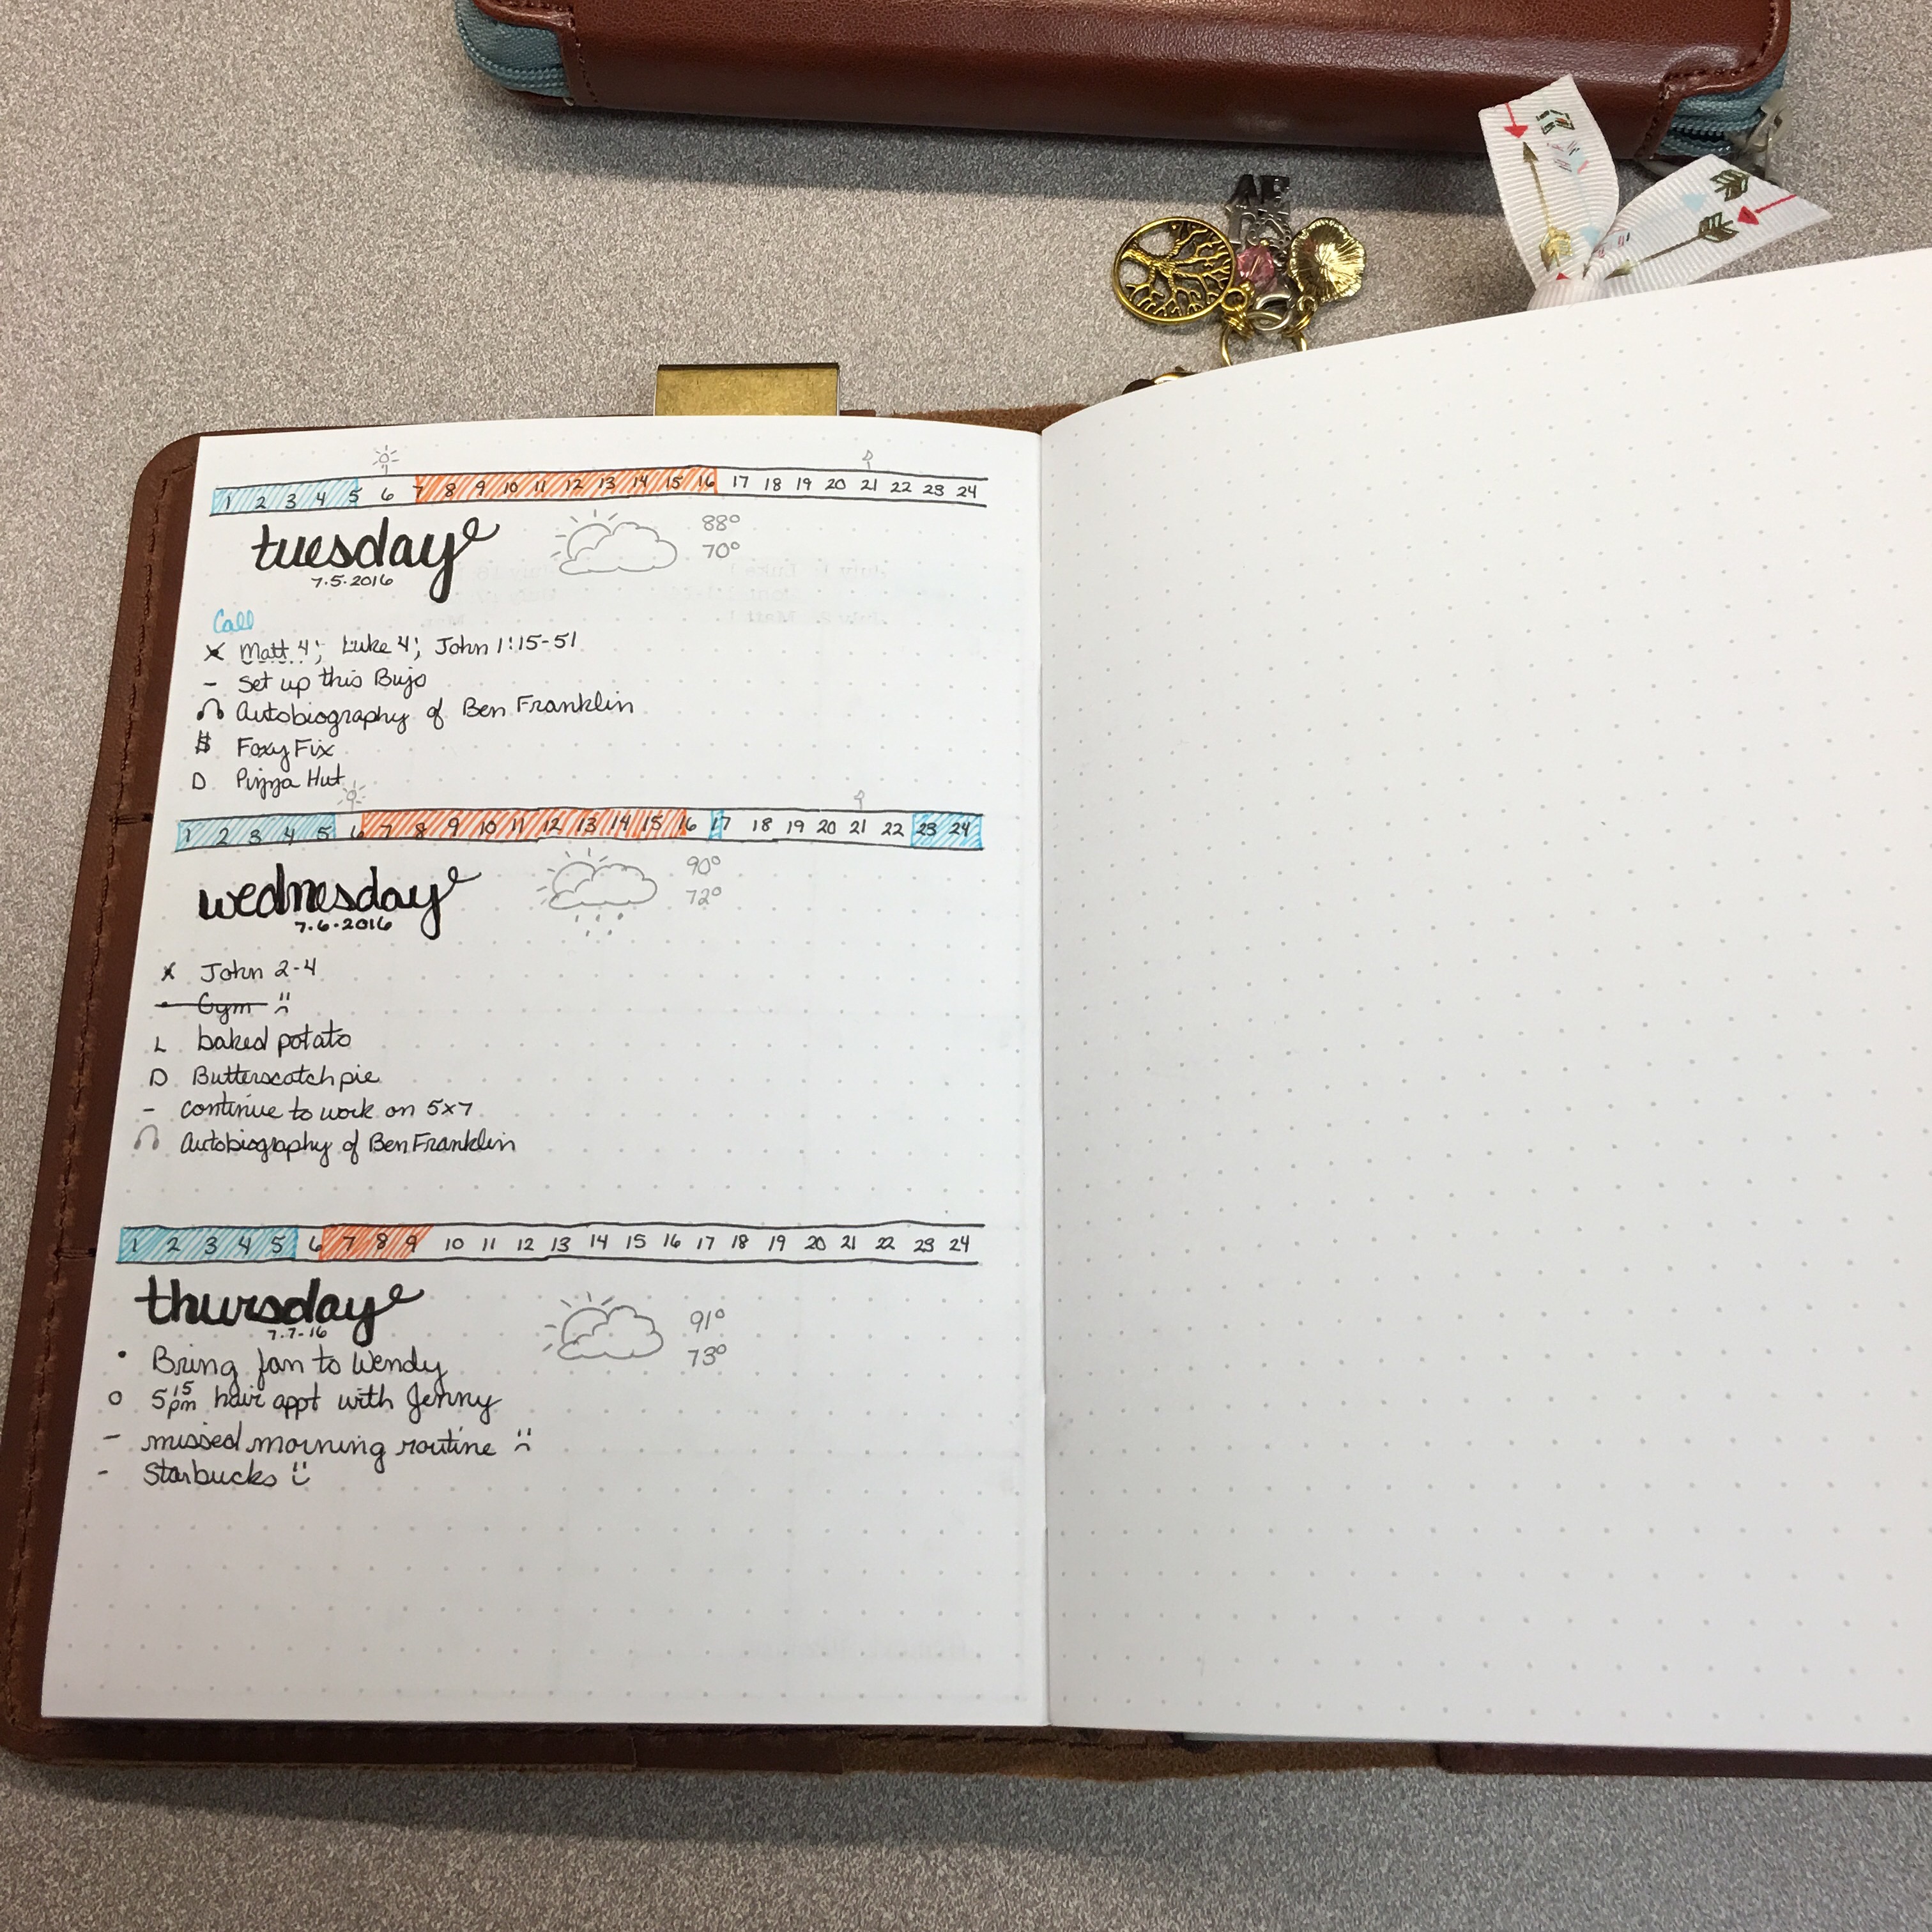 1 2 3 4 5 6 7 8 9 10 11 12 13 14 15 16 17 18 19 20 21 22 23 24
tuesday
88°
70°
7.5.2016
Call
X Matt 4; Luke 4; John 1:15-51
- Set up this Bujo
Autobiography of Ben Franklin
$ Foxy Fix
D Pizza Hut
1 2 3 4 5 6 7 8 9 10 11 12 13 14 15 16 17 18 19 20 21 22 23 24
wednesday
90°
72°
7.6.2016
X John 2-4
• Gym
L baked potato
D Butterscotch pie
- continue to work on 5x7
Autobiography of Ben Franklin
1 2 3 4 5 6 7 8 9 10 11 12 13 14 15 16 17 18 19 20 21 22 23 24
thursday
91°
73°
7.7.16
• Bring fan to Wendy
o 5 15 pm hair appt with Jenny
- missed morning routine
- Starbucks